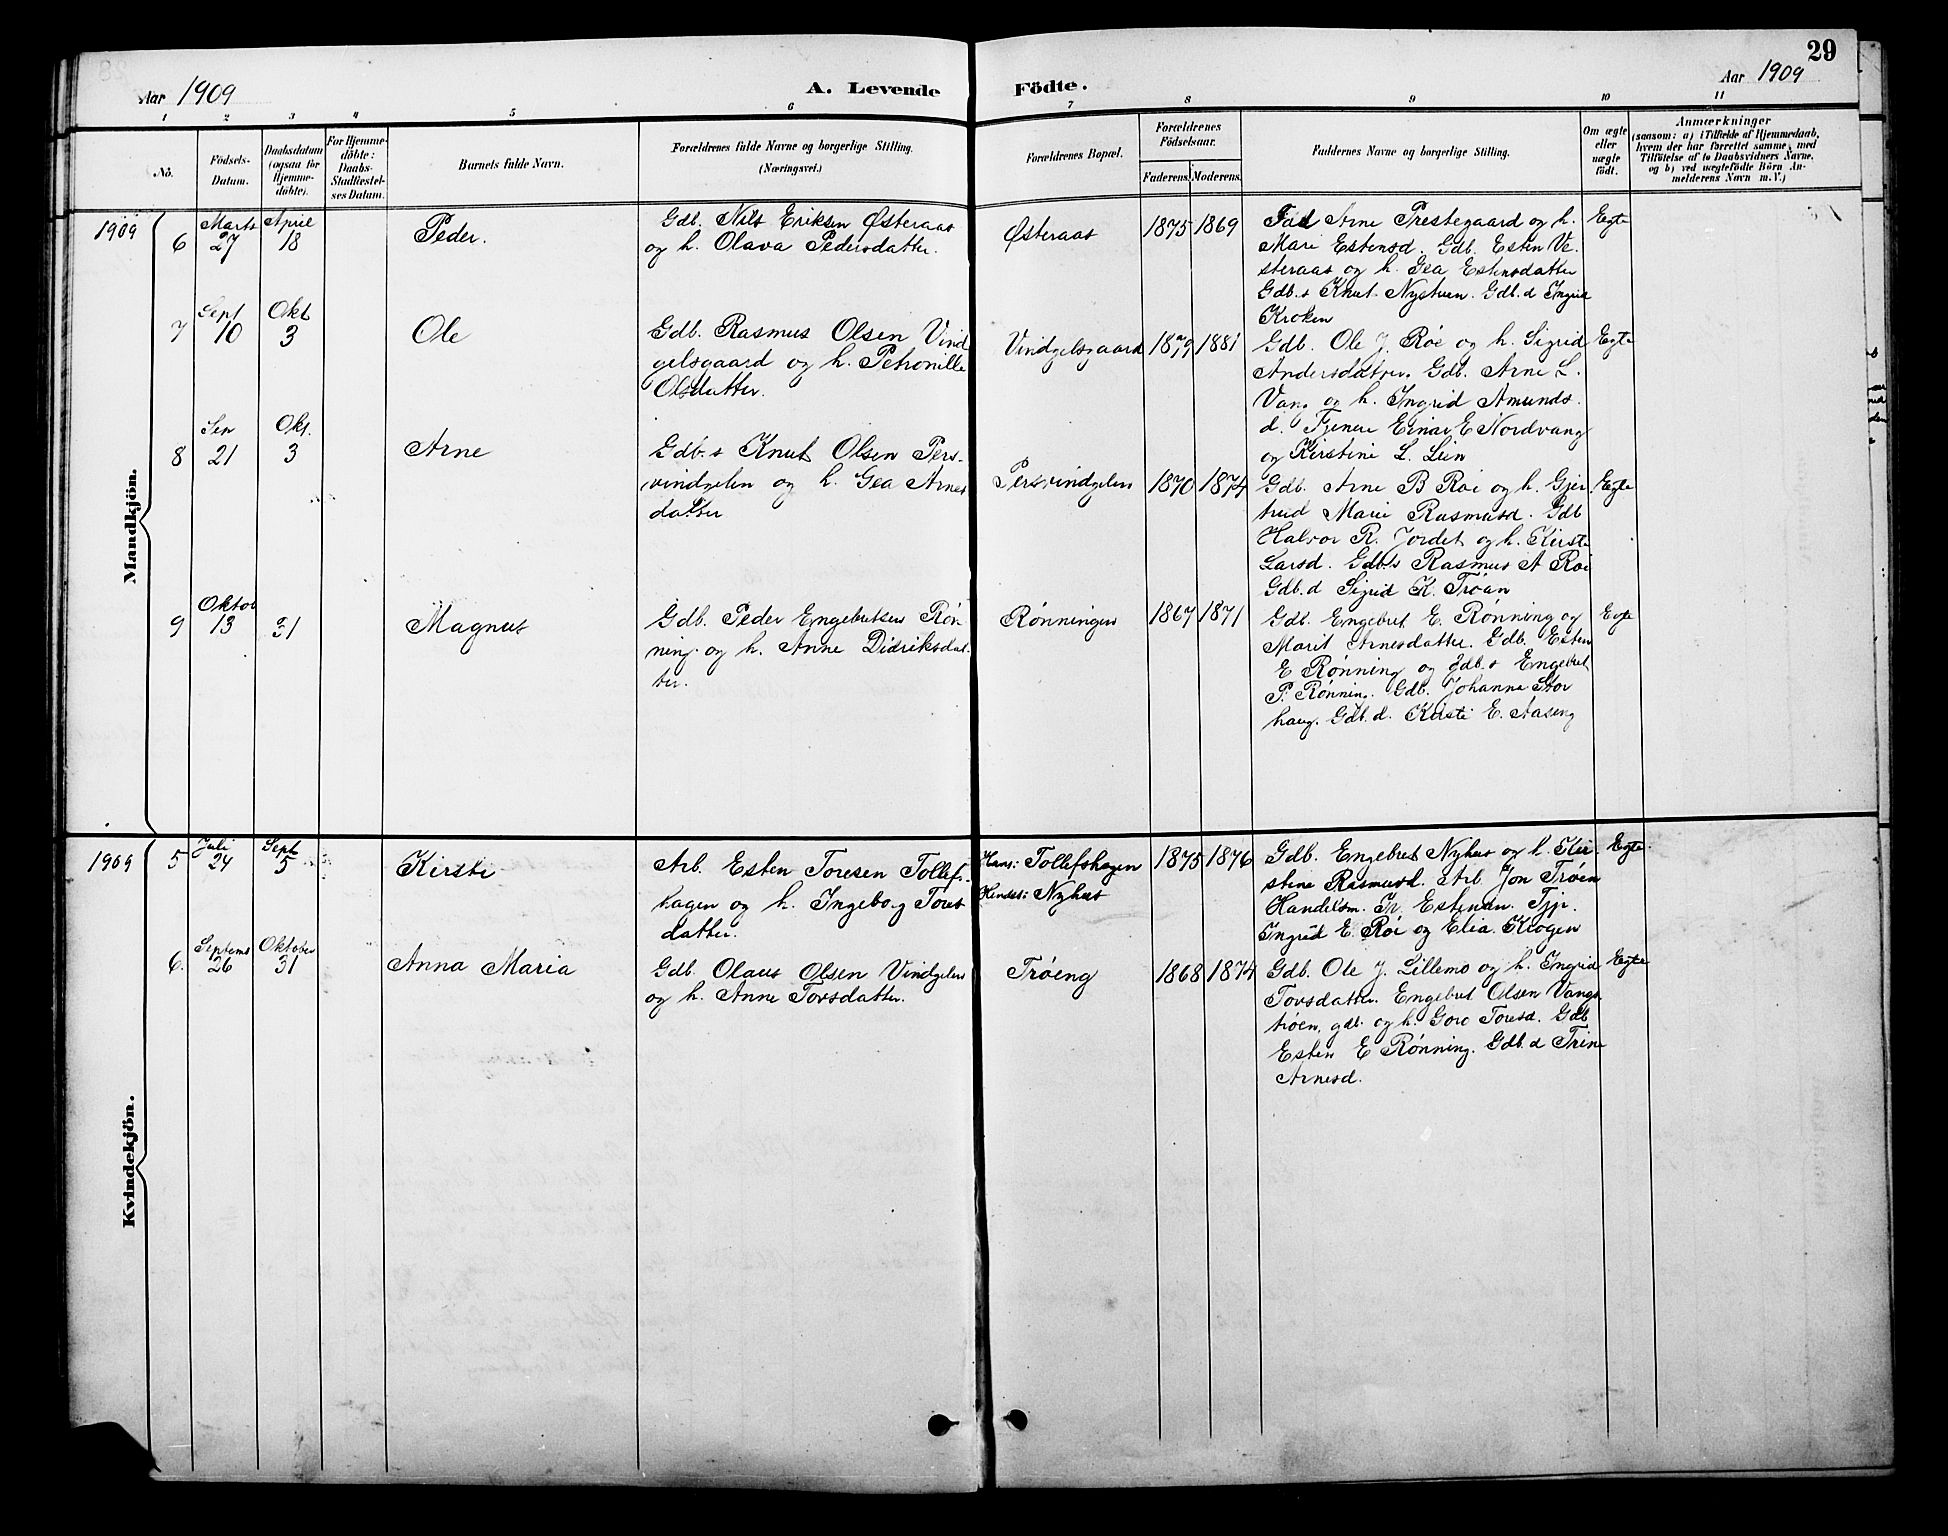 29
Aar 1909 A. Levende Födte. Aar 1909
1 2 3 4 5 6 7 8 9 10 11
No.
Födsels-
Datum.
Daabsdatum
(ogsaa for
Hjemme-
döbte).
For Hjemme-
döbte:
Daabs-
Stadfæstel-
ses Datum.
Barnets fulde Navn.
Forældrenes fulde Navne og borgerlige Stilling.
(Næringsvei.)
Forældrenes Bopæl.
Forældrenes
Födselsaar.
Faderens. Moderens.
Faddernes Navne og borgerlige Stilling.
Om ægte
eller
uægte
födt.
Anmærkninger
(saasom: a) i Tilfælde af Hjemmedaab,
hvem der har forrettet samme, med
Tilföielse af to Daabsvidners Navne,
og b) ved uægtefödte Börn An-
melderens Navn m. V.)
Mandkjön.
1909
6
Marts
27
April
18
Peder.
Gdb. Nils Eriksen Østeraas
og h. Olava Pedersdatter.
Østeraas
1875 1869
Arne Prestegaard og h.
Mari Estensd. Gdb. Esten Ve-
steraas og h. Gea Estensdatter
Gdb.s Knut Nystuen. Gdb.d Ingrid
Kroken
Egte
7
Sept
10
Okt
3
Ole
Gdb. Rasmus Olsen Vind
gelsgaard og h. Petronille
Olsdatter.
Vindgelsgaard
1879 1881
Gdb. Ole J. Røe og h. Sigrid
Andersdatter. Gdb. Arne L.
Vang og h. Ingrid Amunds.
d. Tjener Einar E Nordvang
og Kirstine L. Lien
Egte
8
Sep
21
Okt.
3
Arne
Gdb.s Knut Olsen Pers-
vindgelen og h. Gea Arnes
datter
Persvindgelen
1870 1874
Gdb. Arne B Røe og h. Gjer
trud Marie Rasmusd. Gdb
Halvor R. Jordet og h. Kirsti
Larsd. Gdb.s Rasmus A Røe
Gdb.d Sigrid K. Trøan
Egte
9
Oktob
13
31
Magnus
Gdb. Peder Engebretsen Røn
ning og h. Anne Didriksdat-
ter.
Rønningen
1867 1871
Gdb. Engebret E. Rønning og
Marit Arnesdatter. Gdb. Esten
E Rønning og gdb.s Engebret
P. Rønning. Gdb. Johanna Stor
haug. Gdb.d. Kirsti E. Aaseng
Egte
Kvindekjön.
1909
5
Juli
24
Sept
5
Kirsti
Arb. Esten Toresen Tollefs-
hagen og h. Ingeborg Tores
datter.
Hans: Tollefshagen
Hendes: Nyhus
1875 1876
Gdb. Engebret Nyhus og h. Kir-
stine Rasmusd. Arb. Jon Trøen
Handelsm. Th. Estensen. Tjp.
Ingrid E. Røe og Elia Krogen
Egte.
6.
Septemb
26
Oktober
31
Anna Maria
Gdb. Olaus Olsen Vindgelen
og h. Anne Torsdatter.
Trøeng
1868 1874
Gdb. Ole J. Lillemo og h. Ingrid
Torsdatter. Engebret Olsen Vangs
trøen, gdb. og h. Goro Toresd. Gdb
Esten E Rønning. Gdb.d Trine
Arnesd.
Egte